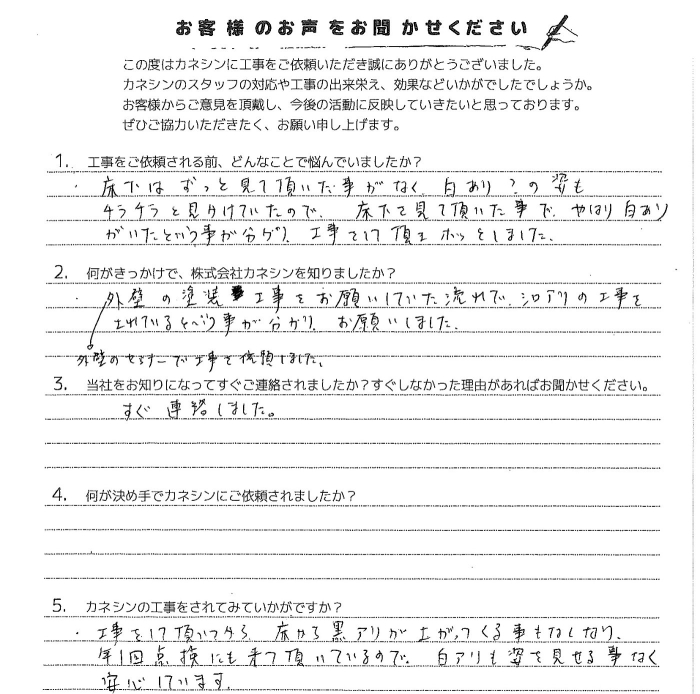 お客様のお声をお聞かせください
この度はカネシンに工事をご依頼いただき誠にありがとうございました。
カネシンのスタッフの対応や工事の出来栄え、効果などいかがでしたでしょうか。
お客様からご意見を頂戴し、今後の活動に反映していきたいと思っております。
ぜひご協力いただきたく、お願い申し上げます。
1. 工事をご依頼される前、どんなことで悩んでいましたか？
・床下はずっと見て頂いた事がなく、白あり？の姿も
チラチラと見かけていたので、床下を見て頂いた事で、やはり白あり
がいたという事が分かり、工事をして頂きホッとしました。
2. 何がきっかけで、株式会社カネシンを知りましたか？
・外壁の塗装工事をお願いしていた流れで、シロアリの工事を
されているという事が分かり、お願いしました。
外壁のセミナーで工事を依頼しました。
3. 当社をお知りになってすぐご連絡されましたか？すぐしなかった理由があればお聞かせください。
すぐ連絡しました。
4. 何が決め手でカネシンにご依頼されましたか？
5. カネシンの工事をされてみていかがですか？
・工事をして頂いてから床から黒アリが上がってくる事もなくなり、
年1回点検にも来て頂いているので、白アリも姿を見せる事なく
安心しています。